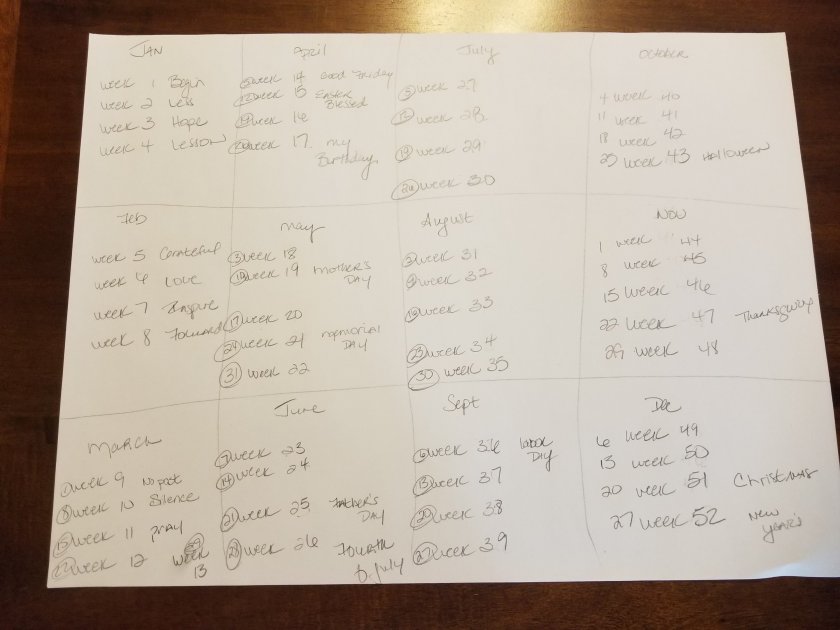 JAN
week 1 Begin
week 2 Less
week 3 Hope
week 4 Lesson
Feb
week 5 Grateful
week 6 Love
week 7 Inspire
week 8 Forward
March
1 week 9 No post
8 week 10 Silence
15 week 11 Pray
22 week 12
29 week 13
April
5 week 14 Good Friday
12 week 15 Easter Blessed
19 week 16
26 week 17 my Birthday
May
3 week 18
10 week 19 Mother's Day
17 week 20
24 week 21 memorial Day
31 week 22
June
7 week 23
14 week 24
21 week 25 Father's Day
28 week 26 Fourth of July
July
5 week 27
12 week 28
19 week 29
26 week 30
August
2 week 31
9 week 32
16 week 33
23 week 34
30 week 35
Sept
6 week 36 Labor Day
13 week 37
20 week 38
27 week 39
October
4 week 40
11 week 41
18 week 42
25 week 43 Halloween
Nov
1 week 44
8 week 45
15 week 46
22 week 47 Thanksgiving
29 week 48
Dec
6 week 49
13 week 50
20 week 51 Christmas
27 week 52 New Year's